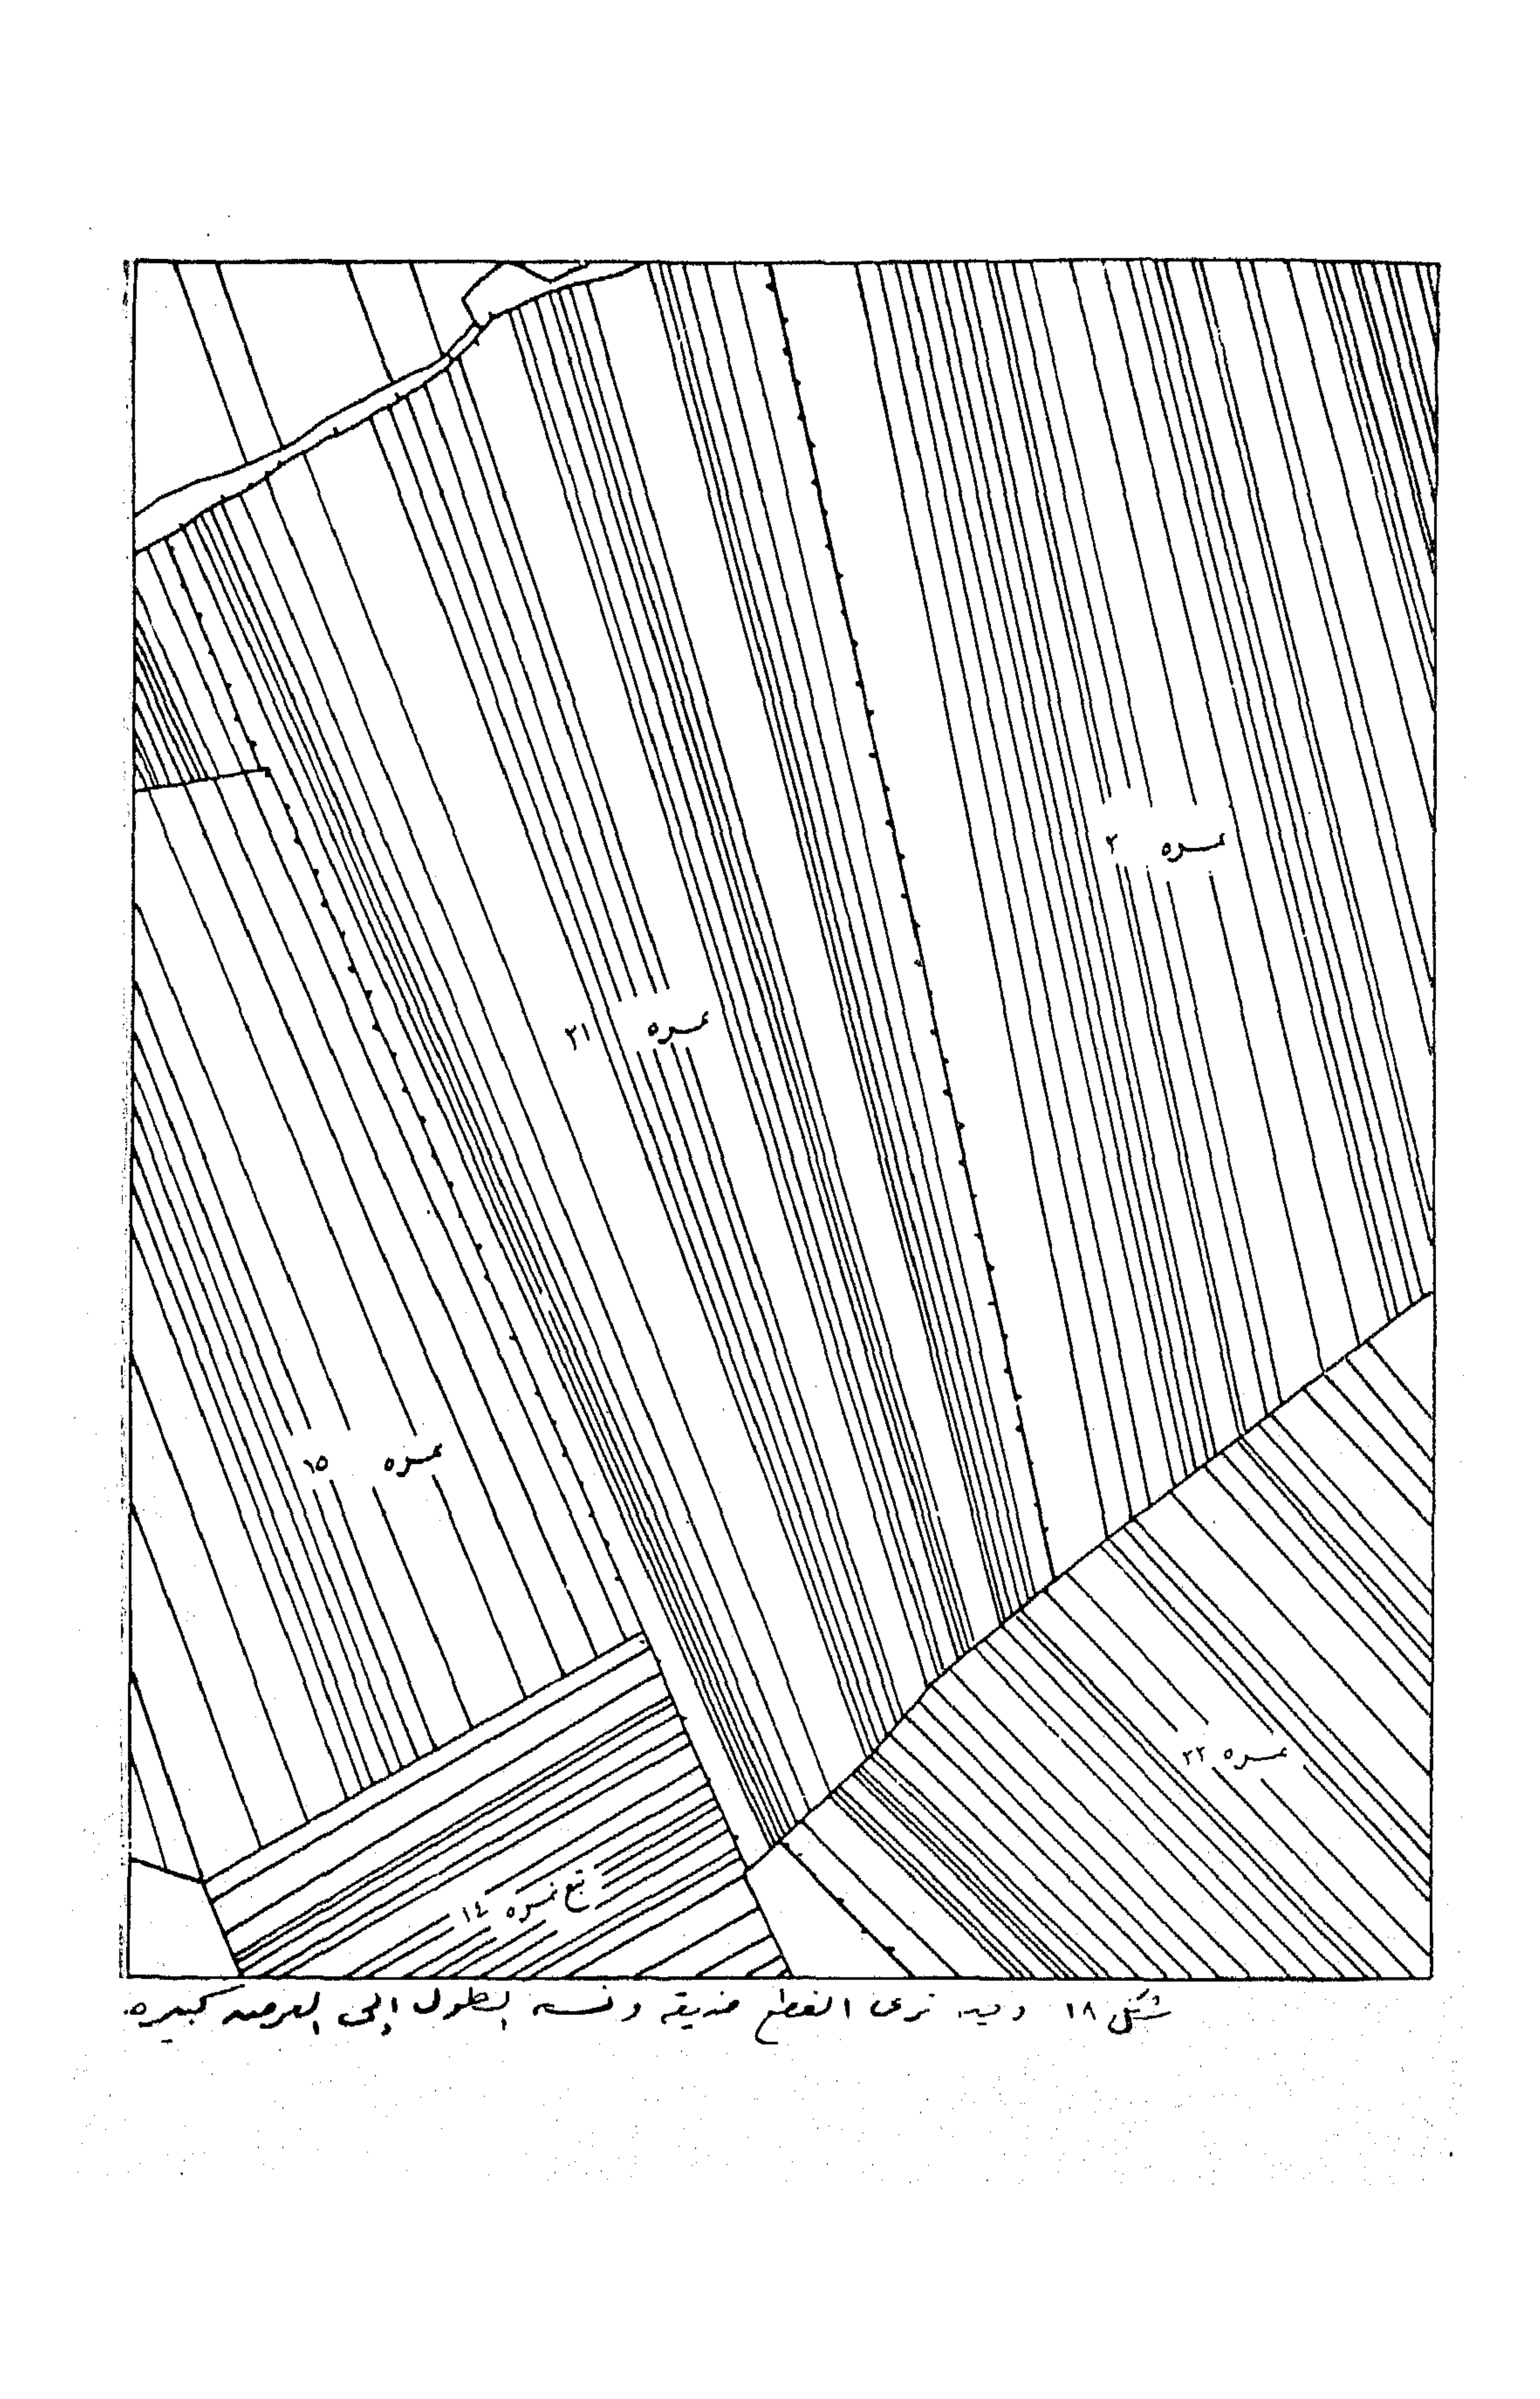 نمره ٢
نمره ٢١
نمره ١٥
نمره ٢٢
تبع نمره ١٤
شكل ١٨ وفيه نرى القطع ضيقه ونسبة الطول إلى العرض كبيره.